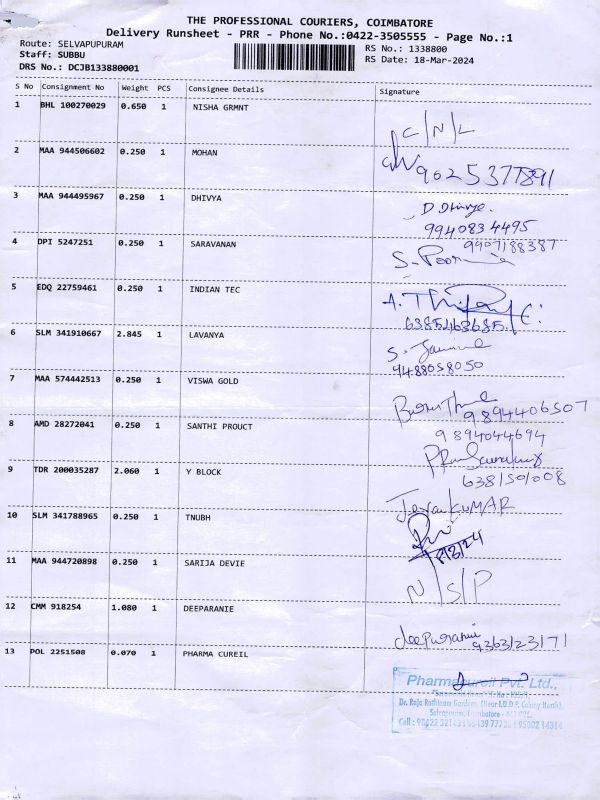 THE PROFESSIONAL COURIERS, COIMBATORE
Delivery Runsheet - PRR - Phone No.:0422-3505555 - Page No.:1
Route: SELVAPUPURAM
Staff: SUBBU
DRS No.: DCJB133880001
RS No.: 1338800
RS Date: 18-Mar-2024
S No Consignment No Weight PCS Consignee Details Signature
1 BHL 100270029 0.650 1 NISHA GRMNT
C/N/L
2 MAA 944506602 0.250 1 MOHAN
9025377891
3 MAA 944495967 0.250 1 DHIVYA
D Dhivya.
9940834495
4 DPI 5247251 0.250 1 SARAVANAN 9907188387
5 EDQ 22759461 0.250 1 INDIAN TEC
6385468685
6 SLM 341910667 2.845 1 LAVANYA
9488058050
7 MAA 574442513 0.250 1 VISWA GOLD
9894406507
8 AMD 28272041 0.250 1 SANTHI PROUCT 9894044694
9 TDR 200035287 2.060 1 Y BLOCK 6381501008
JeyaKUMAR
10 SLM 341788965 0.250 1 TNUBH
11 MAA 944720898 0.250 1 SARIJA DEVIE
N/S/P
12 CMM 918254 1.080 1 DEEPARANIE
9363123171
13 POL 2251508 0.070 1 PHARMA CUREIL
Pharmacureil Pvt. Ltd.,
Dr. Raja Rathinam Gardens, (Near I.U.D.P. Colony North),
Selvapuram, Coimbatore -
Cell :